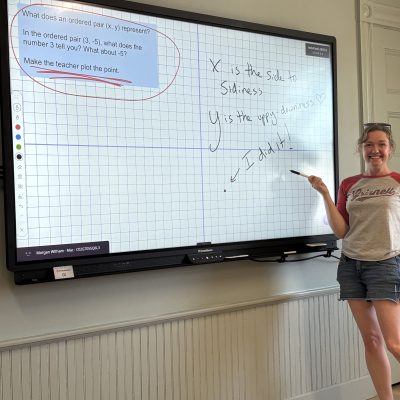 What does an ordered pair (x, y) represent?
In the ordered pair (3, -5), what does the
number 3 tell you? What about -5?
Make the teacher plot the point.
X is the side to
Sidiness
y is the uppy-downness
I did it!
Grinnell